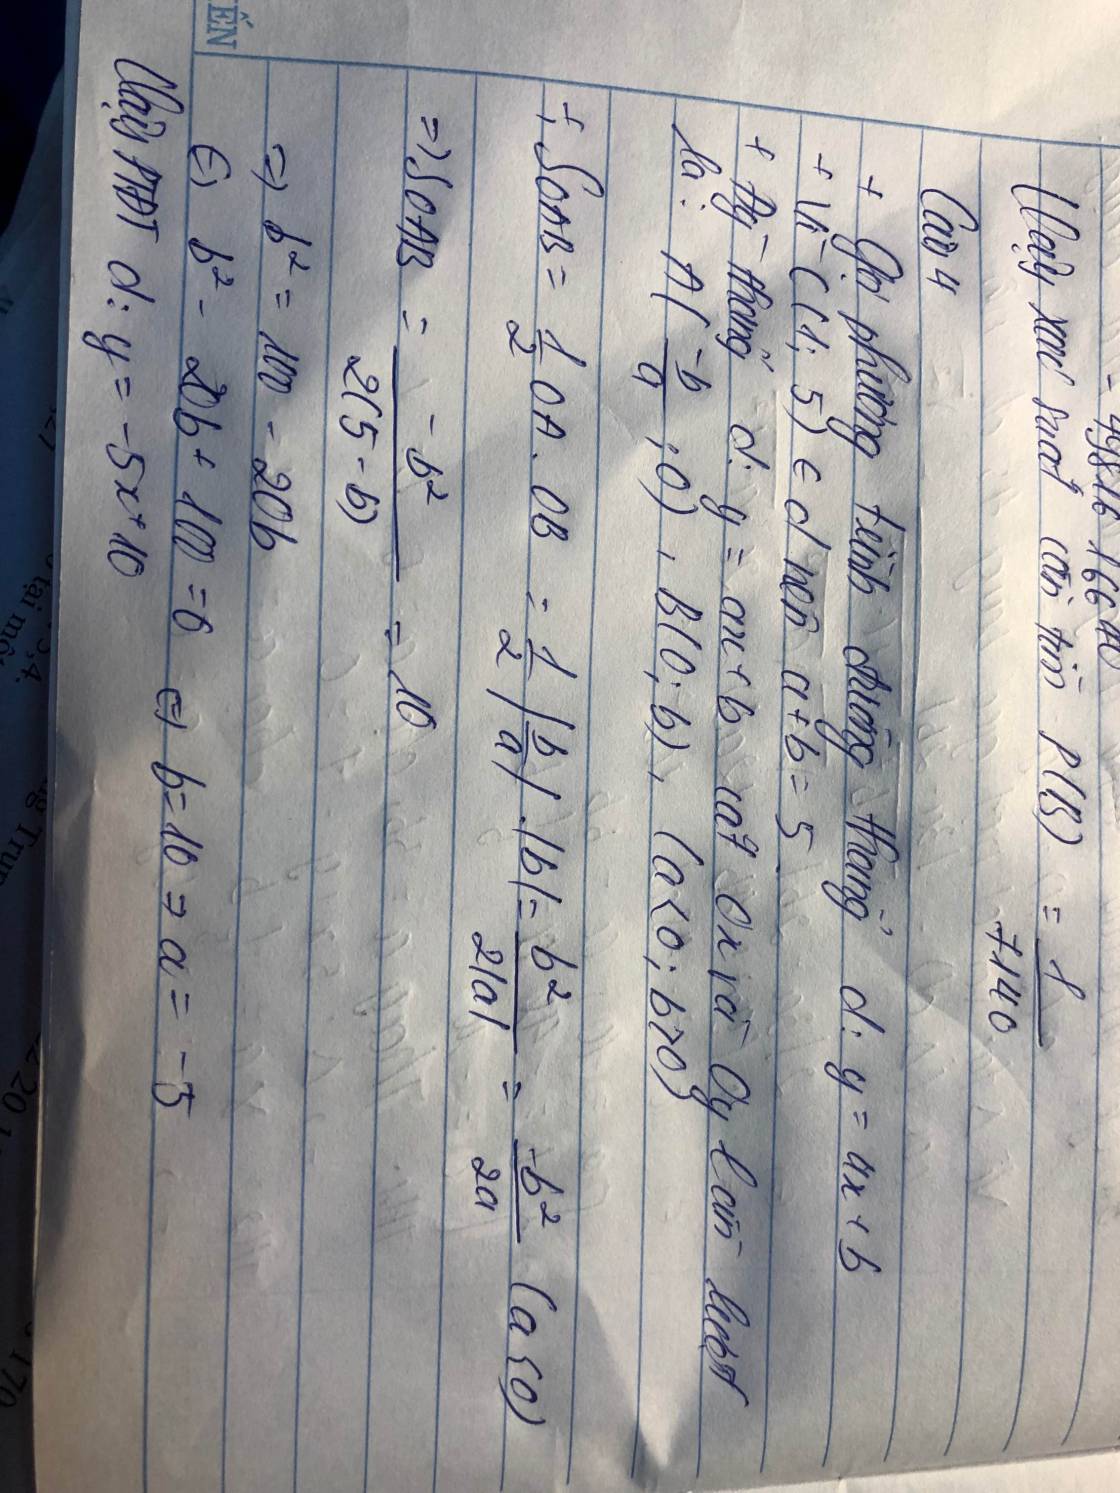 = 498 16 1660
Vậy xác suất cần tìm P(B) = 1/7140
Câu 4
+ Gọi phương trình đường thẳng d: y = ax + b
+ Vì C(1; 5) ∈ d nên a + b = 5
+ Đg thẳng d: y = ax + b cắt Ox và Oy lần lượt
là: A(-b/a ; 0), B(0; b), (a<0; b>0)
+, SOAB = 1/2 OA. OB = 1/2 |b/a|. |b| = b²/2|a| = -b²/2a (a<0)
=> SOAB = -b²/2(5-b) = 10
=> b² = 100 - 20b
<=> b² - 20b + 100 = 0 <=> b = 10 => a = -5
Vậy PTĐT d: y = -5x + 10
ẾN
tại mô
20
170